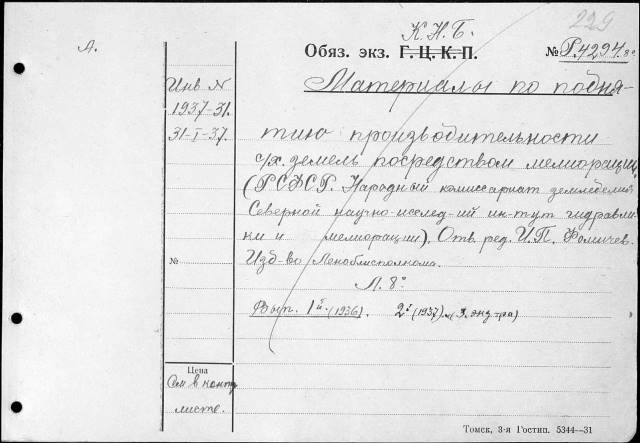 229
К.Н.Б.
А.
Обяз. экз. Г.Ц.К.П. № Р.4294. 8°
Инв N
1937-31.
31-I-37.
Материалы по подня-
тию производительности
с/х. земель посредством мелиорации,
(РСФСР. Народный комиссариат земледелия
Северной научно-исслед-ий ин-тут гидравли-
ки и мелиорации). Отв. ред. И.П. Фомичев.
№ Изд-во Леноблисполкома.
Л. 8°
Вып. 1й (1936). 2й (1937) (3. экз-ра)
Цена
См в конт.
листе.
Томск, 3-я Гостип. 5344—31